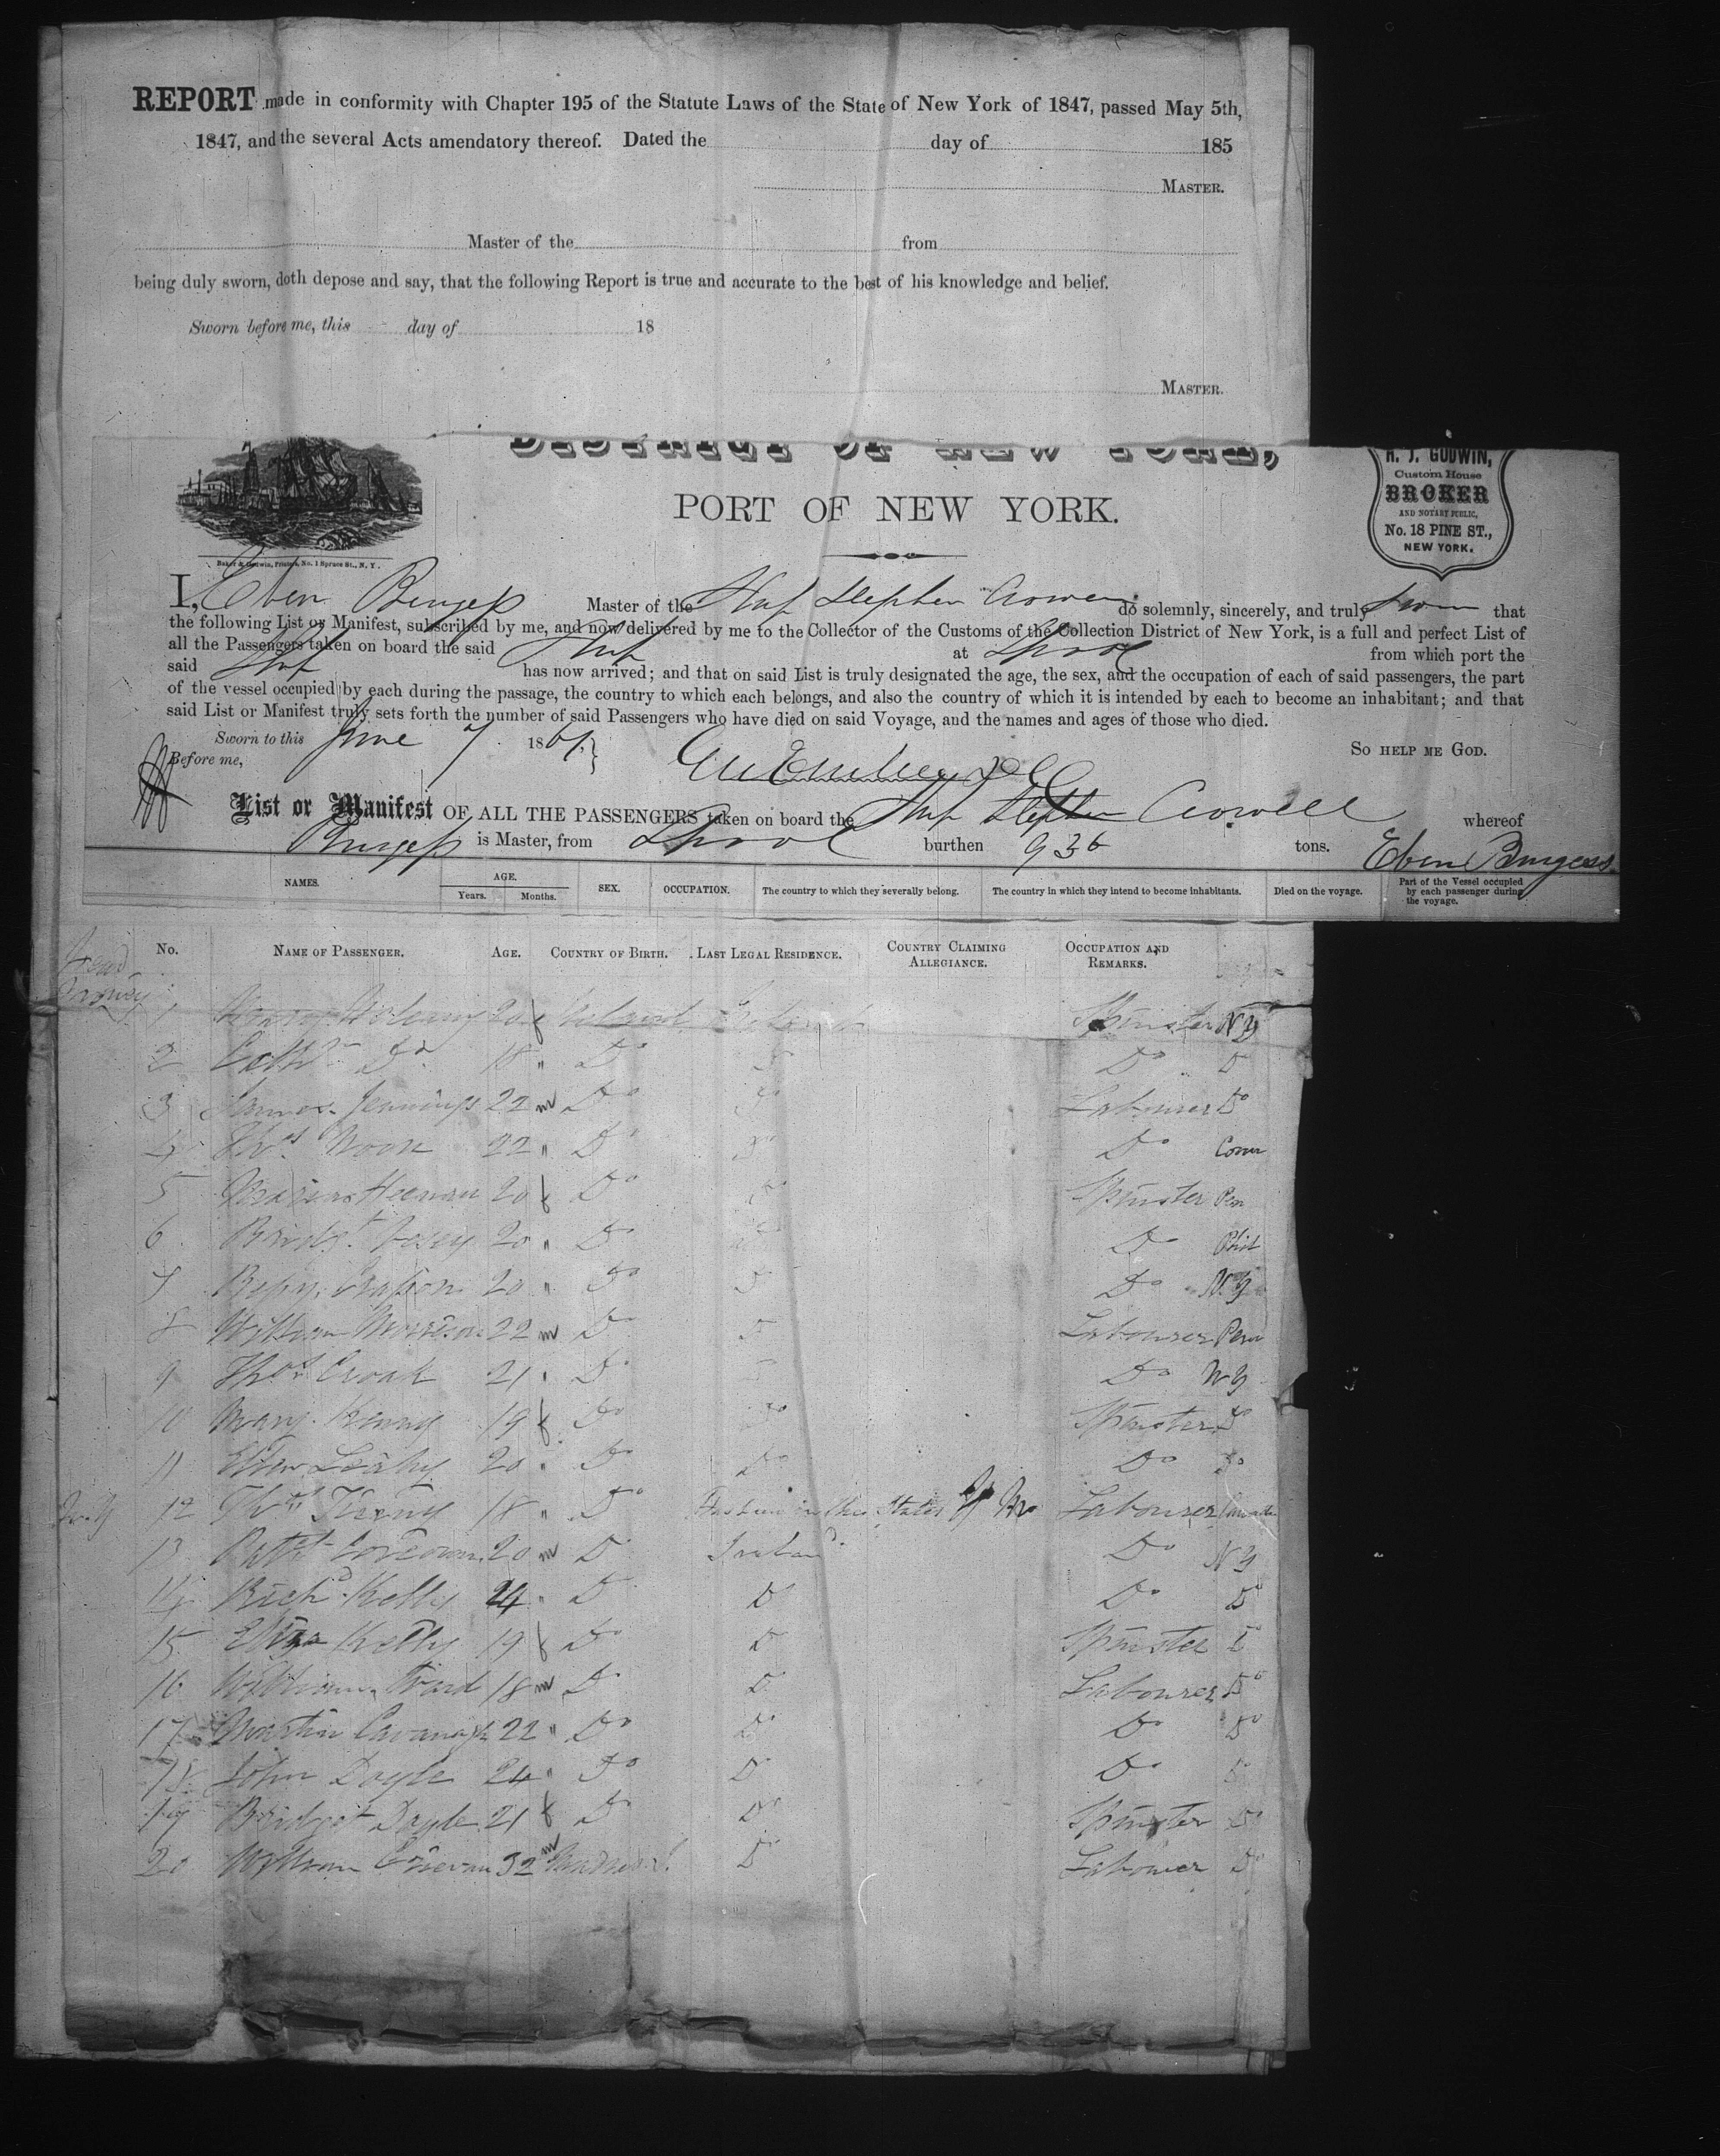 REPORT made in conformity with Chapter 195 of the Statute Laws of the State of New York of 1847, passed May 5th,
1847, and the several Acts amendatory thereof. Dated the day of 185
MASTER.
Master of the from
being duly sworn, doth depose and say, that the following Report is true and accurate to the best of his knowledge and belief.
Sworn before me, this day of 18
MASTER.
DISTRICT OF NEW YORK,
PORT OF NEW YORK.
H. J. GODWIN,
Custom House
BROKER
AND NOTARY PUBLIC,
No. 18 PINE ST.,
NEW YORK.
Baker & Godwin, Printers, No. 1 Spruce St., N. Y.
I, Eben Burgess Master of the Ship Stephen Crowell do solemnly, sincerely, and truly swear that
the following List or Manifest, subscribed by me, and now delivered by me to the Collector of the Customs of the Collection District of New York, is a full and perfect List of
all the Passengers taken on board the said Ship at Lpool from which port the
said Ship has now arrived; and that on said List is truly designated the age, the sex, and the occupation of each of said passengers, the part
of the vessel occupied by each during the passage, the country to which each belongs, and also the country of which it is intended by each to become an inhabitant; and that
said List or Manifest truly sets forth the number of said Passengers who have died on said Voyage, and the names and ages of those who died.
Sworn to this June 7 1861, SO HELP ME GOD.
Before me,
List or Manifest OF ALL THE PASSENGERS taken on board the Ship Stephen Crowell whereof
Burgess is Master, from Lpool burthen 936 tons. Eben Burgess
NAMES. AGE. Years. Months. SEX. OCCUPATION. The country to which they severally belong. The country in which they intend to become inhabitants. Died on the voyage. Part of the Vessel occupied by each passenger during the voyage.
No. NAME OF PASSENGER. AGE. COUNTRY OF BIRTH. LAST LEGAL RESIDENCE. COUNTRY CLAIMING ALLEGIANCE. OCCUPATION AND REMARKS.
1 20 f Ireland Ireland Spinster NY
2 Cathn Do 18 " Do Do Do Do
3 James Jennings 22 m Do Do Labourer Do
4 Thos Moon 22 " Do Do Do Conn
5 Heenan 20 f Do Do Spinster Pen
6 Bridgt 20 " Do Do Do Phil
7 20 " Do Do Do N.Y
8 William Morrison 22 m Do Do Labourer Pen
9 Thos Croak 21 " Do Do NY
10 Mary Kenny 19 f Do Do Spinster Do
11 Ellen Leahy 20 " Do Do Do Do
12 Thos 18 " Do States Labourer
13 Patk Corcoran 20 m Do Ireland Do NY
14 Richd Kelly 24 " Do Do Do Do
15 Eliza Kelly 19 f Do Do Spinster Do
16 William Ward 18 m Do Do Labourer Do
17 Martin Cavanagh 22 " Do Do Do Do
18 John Doyle 24 " Do Do Do Do
19 Bridget Doyle 21 f Do Do Spinster Do
20 William 32 m Do Labourer Do